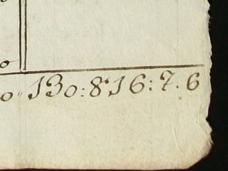 o
o 130:816:7.6